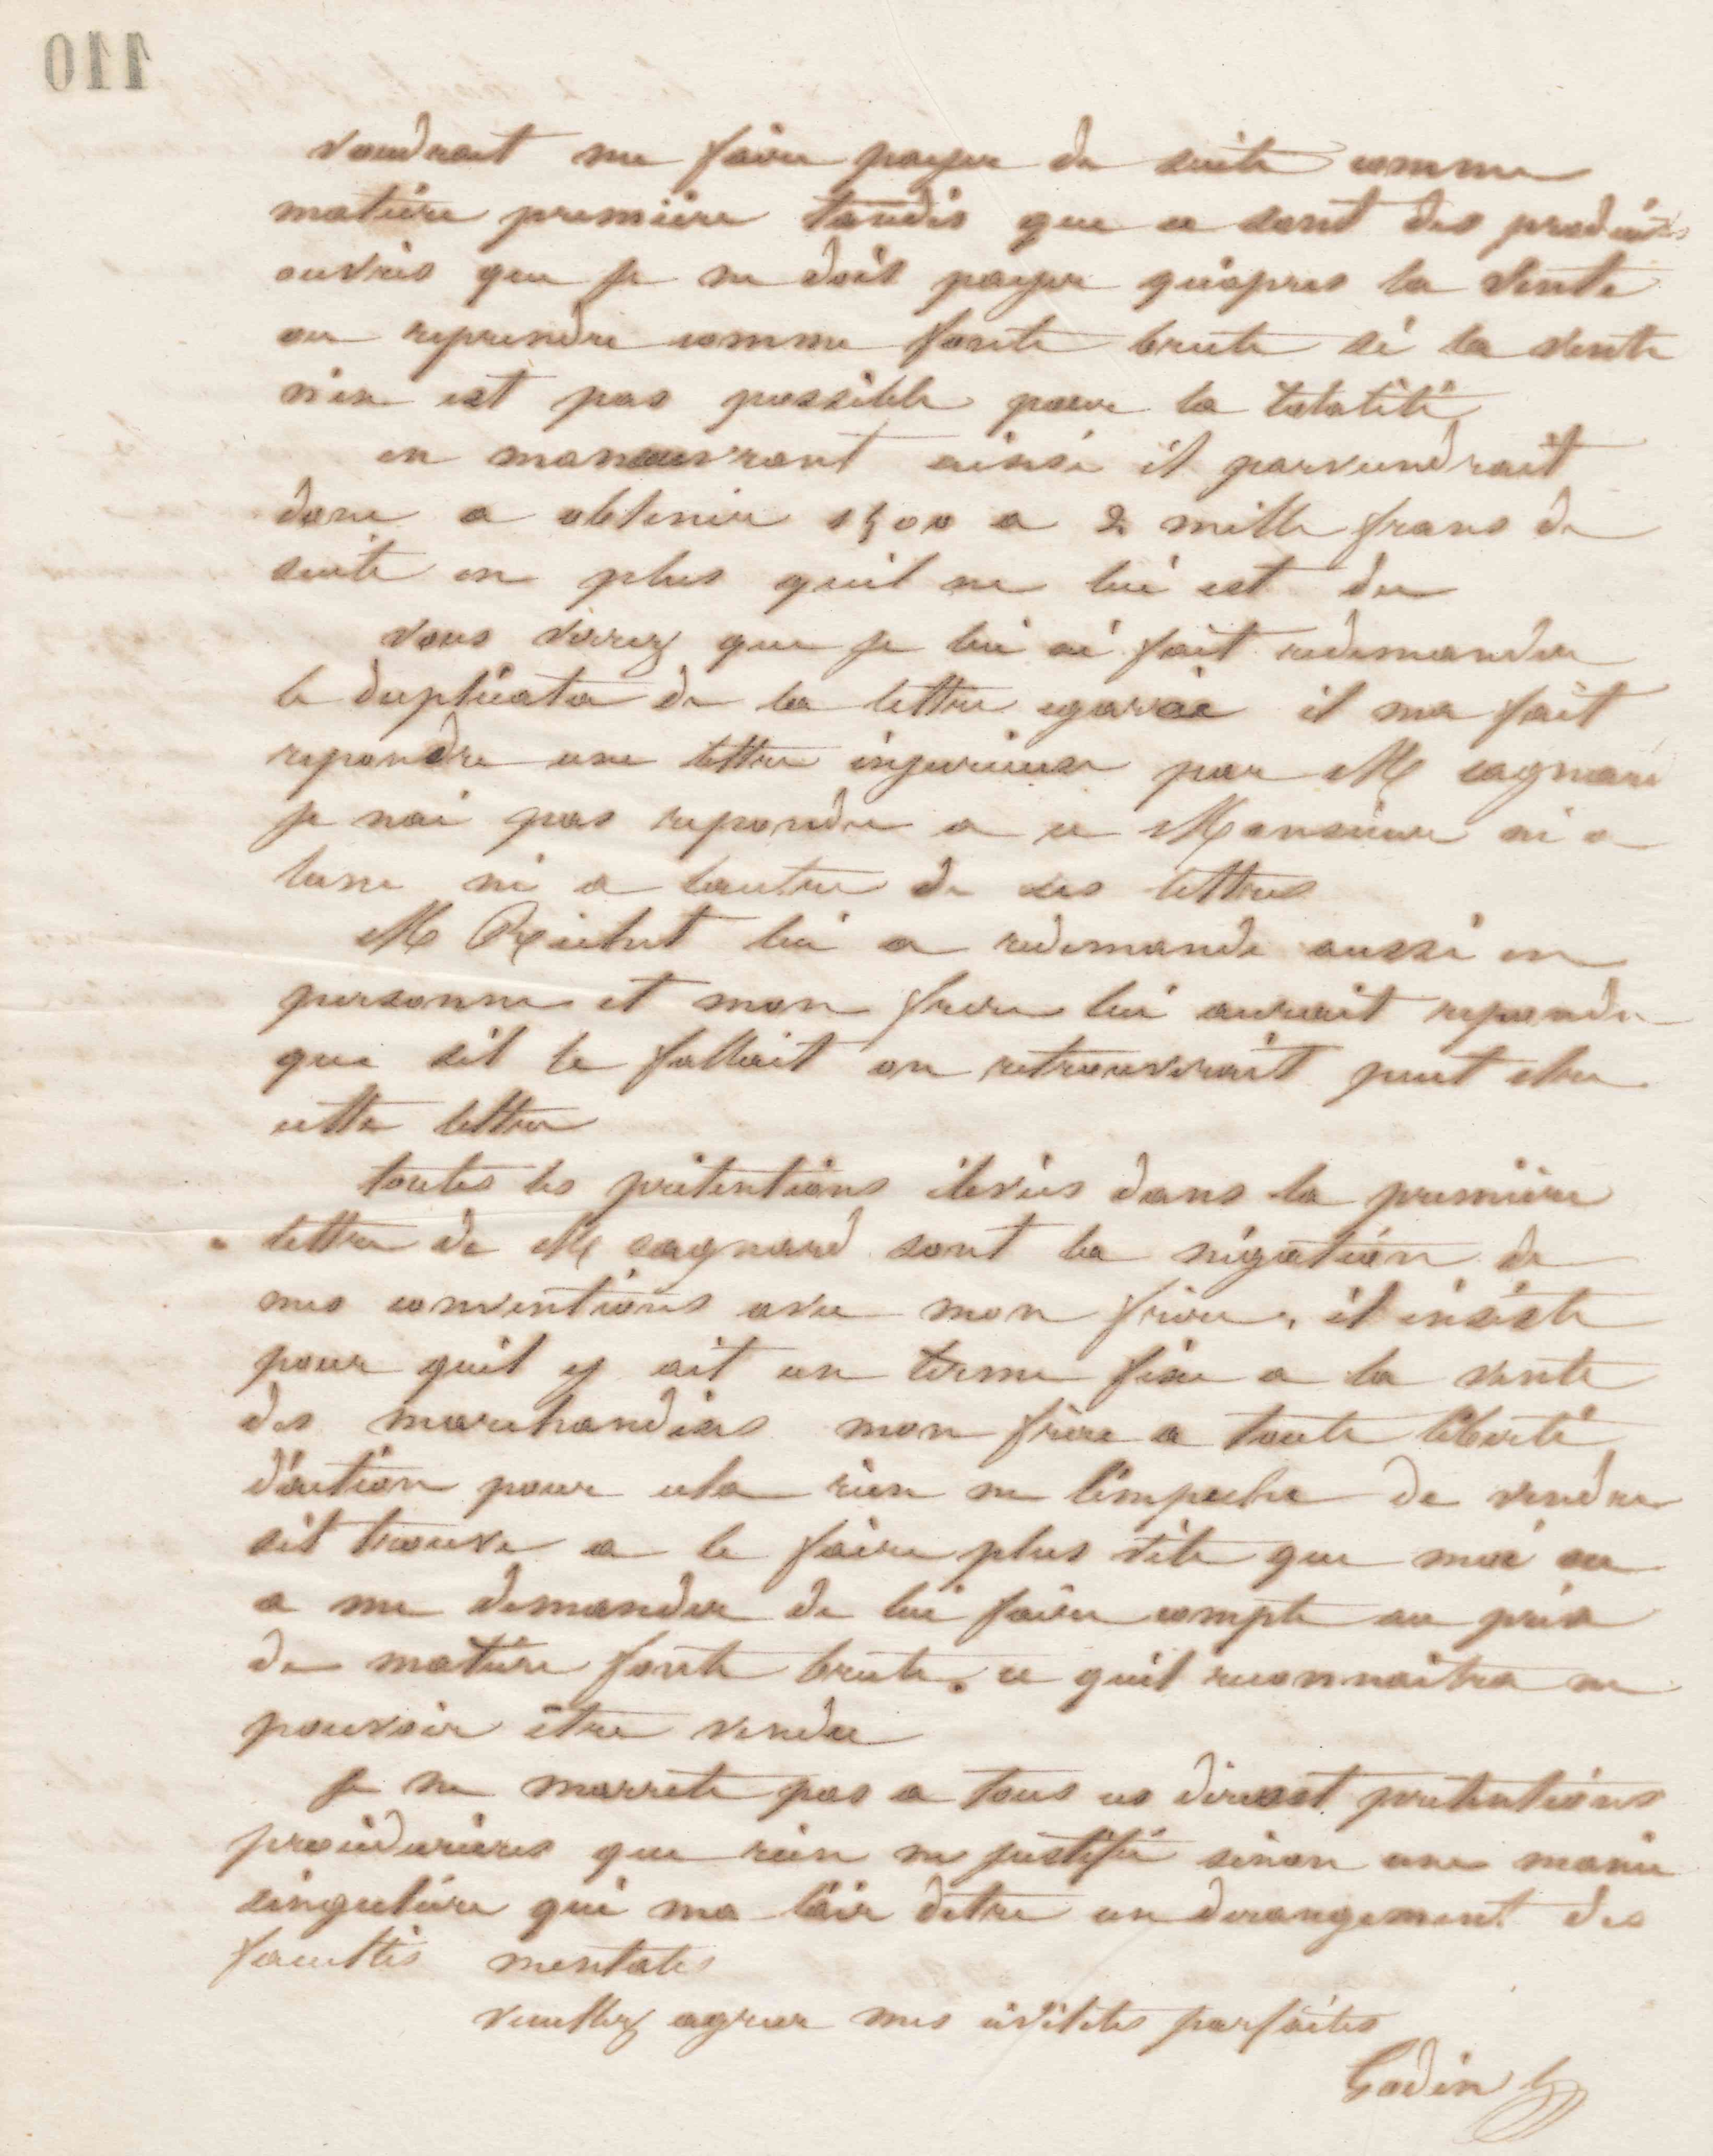 110
voudrait me faire payer de suite comme
matière première tandis que ce sont des produits
ouvrés que je ne dois payer qu'après la vente
ou reprendre comme fonte brute si la vente
n'en est pas possible pour la totalité
en manoeuvrant ainsi il parviendrait
donc a obtenir 1500 a 2 mille frans de
suite en plus quil ne lui est du
vous verrez que je lui ai fait redemander
le duplicata de la lettre egarée il ma fait
repondre une lettre injurieuse par M cagnard
je nai pas repondu a ce Monsieur ni a
lune ni a lautre de ses lettres
M lui a redemandé aussi en
personne et mon frere lui aurait repondu
que sil le fallait on retrouverait peut etre
cette lettre
toutes les prétentions élevées dans la première
lettre de M cagnard sont la négation de
mes conventions avec mon frère, il insiste
pour quil y ait un terme fixe a la vente
des marchandises mon frère a toute liberté
d'action pour cela rien ne l'empeche de vendre
sil trouve a le faire plus vite que moi ou
a me demander de lui faire compte au prix
de matière fonte brute. ce quil reconnaitra ne
pouvoir être vendu
je ne marrete pas a tous ces dires et pretentions
procédurières que rien ne justifie sinon une manie
singulière qui ma lair detre un derangement des
facultés mentales
veuillez agreer mes civilités parfaites
Godin